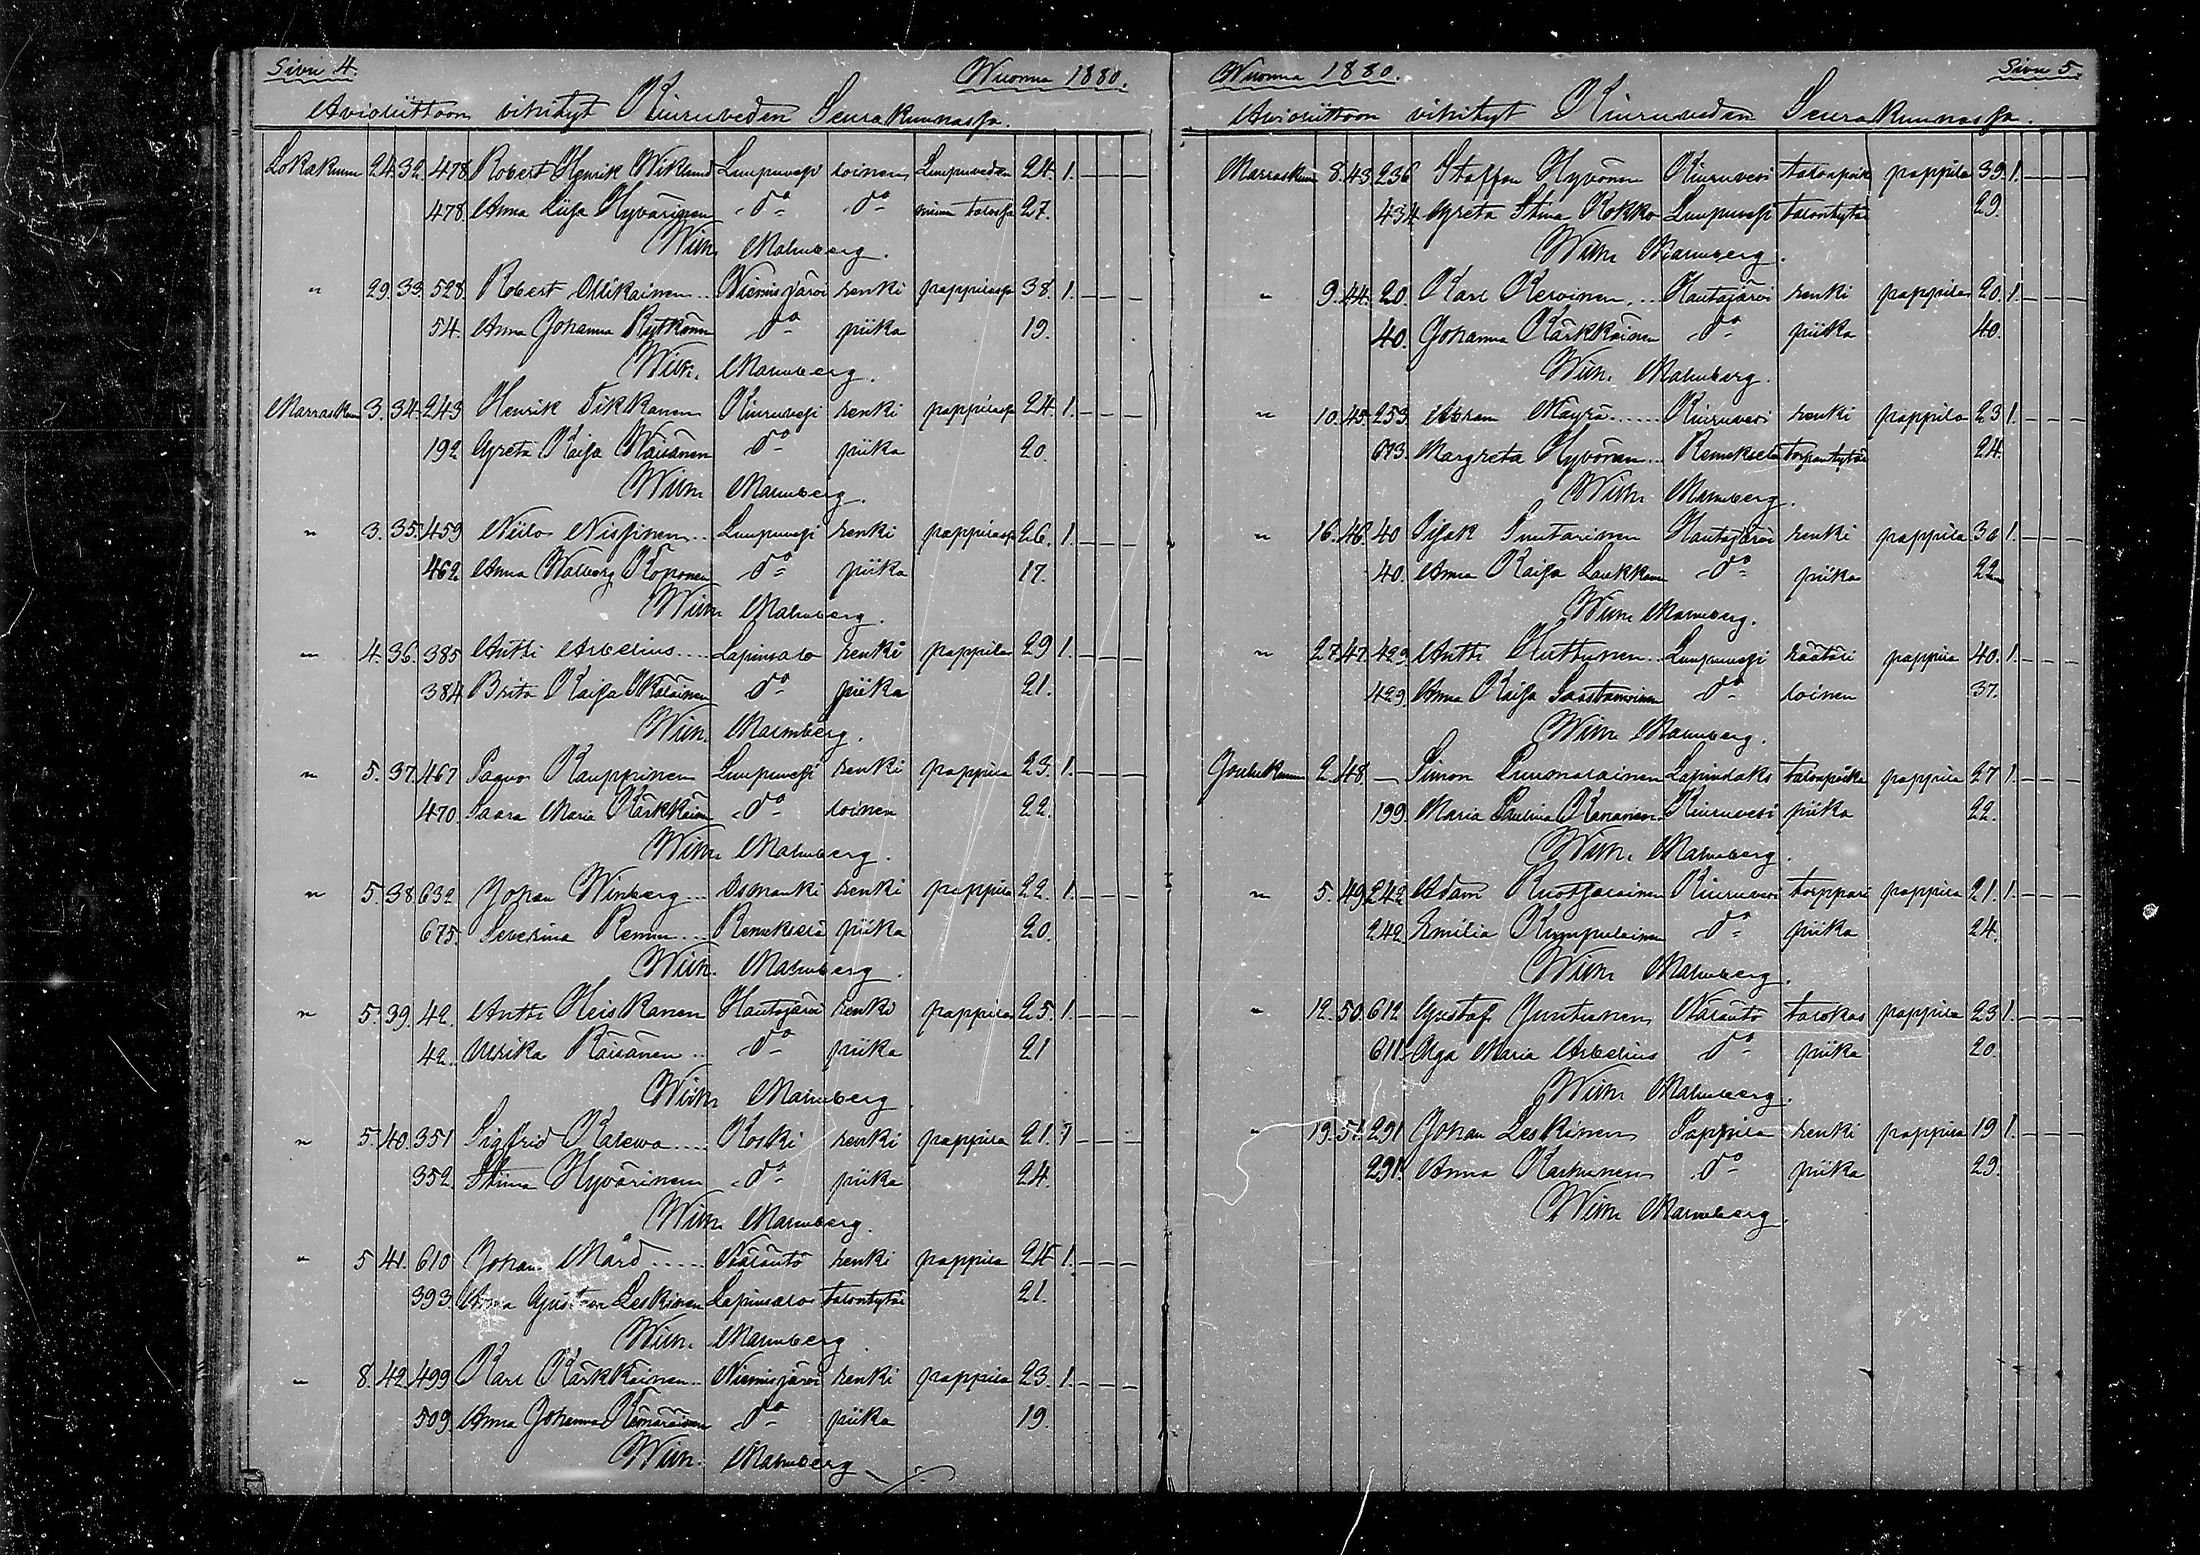 Sivu 4. Wuonna 1880.
Avioliittoon vihityt Kiuruveden Seurakunnassa.
Lokakuun 24. 32. 478 Robert Henrik Wiklund Luupuvesi loinen Luupuveden 24. 1. — — —
478. Anna Liisa Hyvärinen do do talossa 27.
Wilh. Malmberg.
" 29. 33. 528. Robert Ollikainen... Niemisjärvi renki pappilassa 38. 1. — — —
54. Anna Johanna Rytkönen do piika 19.
Wilh. Malmberg.
Marraskuun 3. 34. 243 Henrik Tikkanen Kiuruvesi renki pappilassa 24. 1. — — —
192 Greta Kaisa Väisänen do piika 20.
Wilh. Malmberg.
" 3. 35. 459 Niilo Nissinen... Luupuvesi renki pappilassa 26. 1. — — —
462. Anna Walborg Koponen do piika 17.
Wilh. Malmberg.
" 4. 36. 385 Antti Arbelius.... Lapinsalo renki pappila 29 1. — — —
384 Brita Kaisa do piika 21.
Wilh. Malmberg.
" 5. 37. 467 Paavo Kauppinen Luupuvesi renki pappila 23. 1. — — —
470. Saara Maria Kärkkäinen do loinen 22.
Wilh. Malmberg.
" 5. 38. 632 Johan Winberg... Osmanki renki pappila 22. 1. — — —
675. Severina Remes... Remeskylä piika 20.
Wilh. Malmberg.
" 5. 39. 42. Antti Heiskanen Hautajärvi renki pappila 25. 1. — — —
42. Ulrika Räisänen.. do piika 21
Wilh. Malmberg.
" 5. 40. 351 Sigfrid Kalewa..... Koski renki pappila 21. 1 — — —
352. Stina Hyvärinen do piika 24.
Wilh. Malmberg.
" 5 41. 610 Johan Mård..... Näläntö renki pappila 24. 1. — — —
393 Anna Gustava Leskinen Lapinsalo talontytär 21.
Wilh. Malmberg
" 8. 42. 499 Karl Kärkkäinen.. Niemisjärvi renki pappila 23. 1. — — —
509. Anna Johanna Kämäräinen do piika 19.
Wilh. Malmberg
Wuonna 1880. Sivu 5.
Avioliittoon vihityt Kiuruveden Seurakunnassa.
Marraskuun 8. 43. 236 Staffan Hyvönen Kiuruvesi talonpoika pappila 39. 1. — — —
434 Greta Stina Kokko Luupuvesi talontytär 29.
Wilh. Malmberg.
" 9. 44. 20. Karl Keroinen... Hautajärvi renki pappila 20. 1. — — —
40. Johanna Kärkkäinen do piika 40.
Wilh. Malmberg.
" 10. 45. 253. Abram Mäyrä...... Kiuruvesi renki pappila 23 1. — — —
673. Margreta Hyvönen.. Remeskylä torpantytär 24.
Wilh. Malmberg.
" 16. 46. 40 Isak Suutarinen Hautajärvi renki pappila 30 1. — — —
40. Anna Kaisa Laukkanen do piika 22
Wilh. Malmberg.
" 27. 47. 429 Antti Huttunen... Luupuvesi räätäli pappila 40. 1. — — —
429. Anna Kaisa Saastamoinen do loinen 37.
Wilh. Malmberg.
Joulukuun 2. 48. — Simon Luomalainen Lapinlahti talonpoika pappila 27 1. — — —
199. Maria Paulina Kananen Kiuruvesi piika 22.
Wilh. Malmberg.
" 5. 49. 242 Adam Ruotsalainen Kiuruvesi torppari pappila 21. 1. — — —
242. Emilia Kumpulainen do piika 24.
Wilh. Malmberg.
" 12. 50. 612 Gustaf Juntunen Näläntö talokas pappila 23 1. — — —
611 Olga Maria Arbelius do piika 20.
Wilh. Malmberg.
" 19. 51. 291 Johan Leskinen Pappila renki pappila 19 1. — — —
291. Anna Karhunen do piika 29.
Wilh. Malmberg.